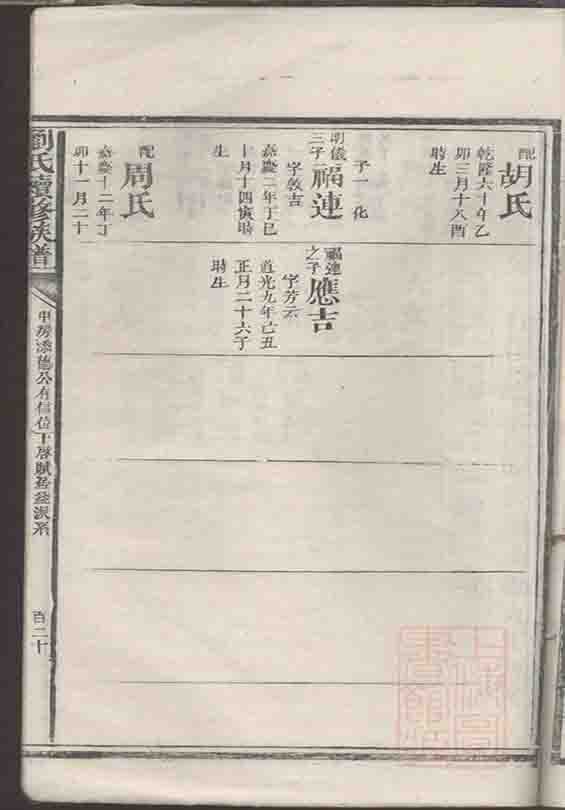 配
胡氏
乾隆六十年乙
卯三月十八酉
時生
子一 化
明儀
三子
福連
字敦吉
嘉慶二年丁巳
十月十四寅時
生
配
周氏
嘉慶十二年丁
卯十一月二十
福連
之子
應吉
字芳云
道光九年己丑
正月二十六子
時生
劉氏續修族譜
百二十